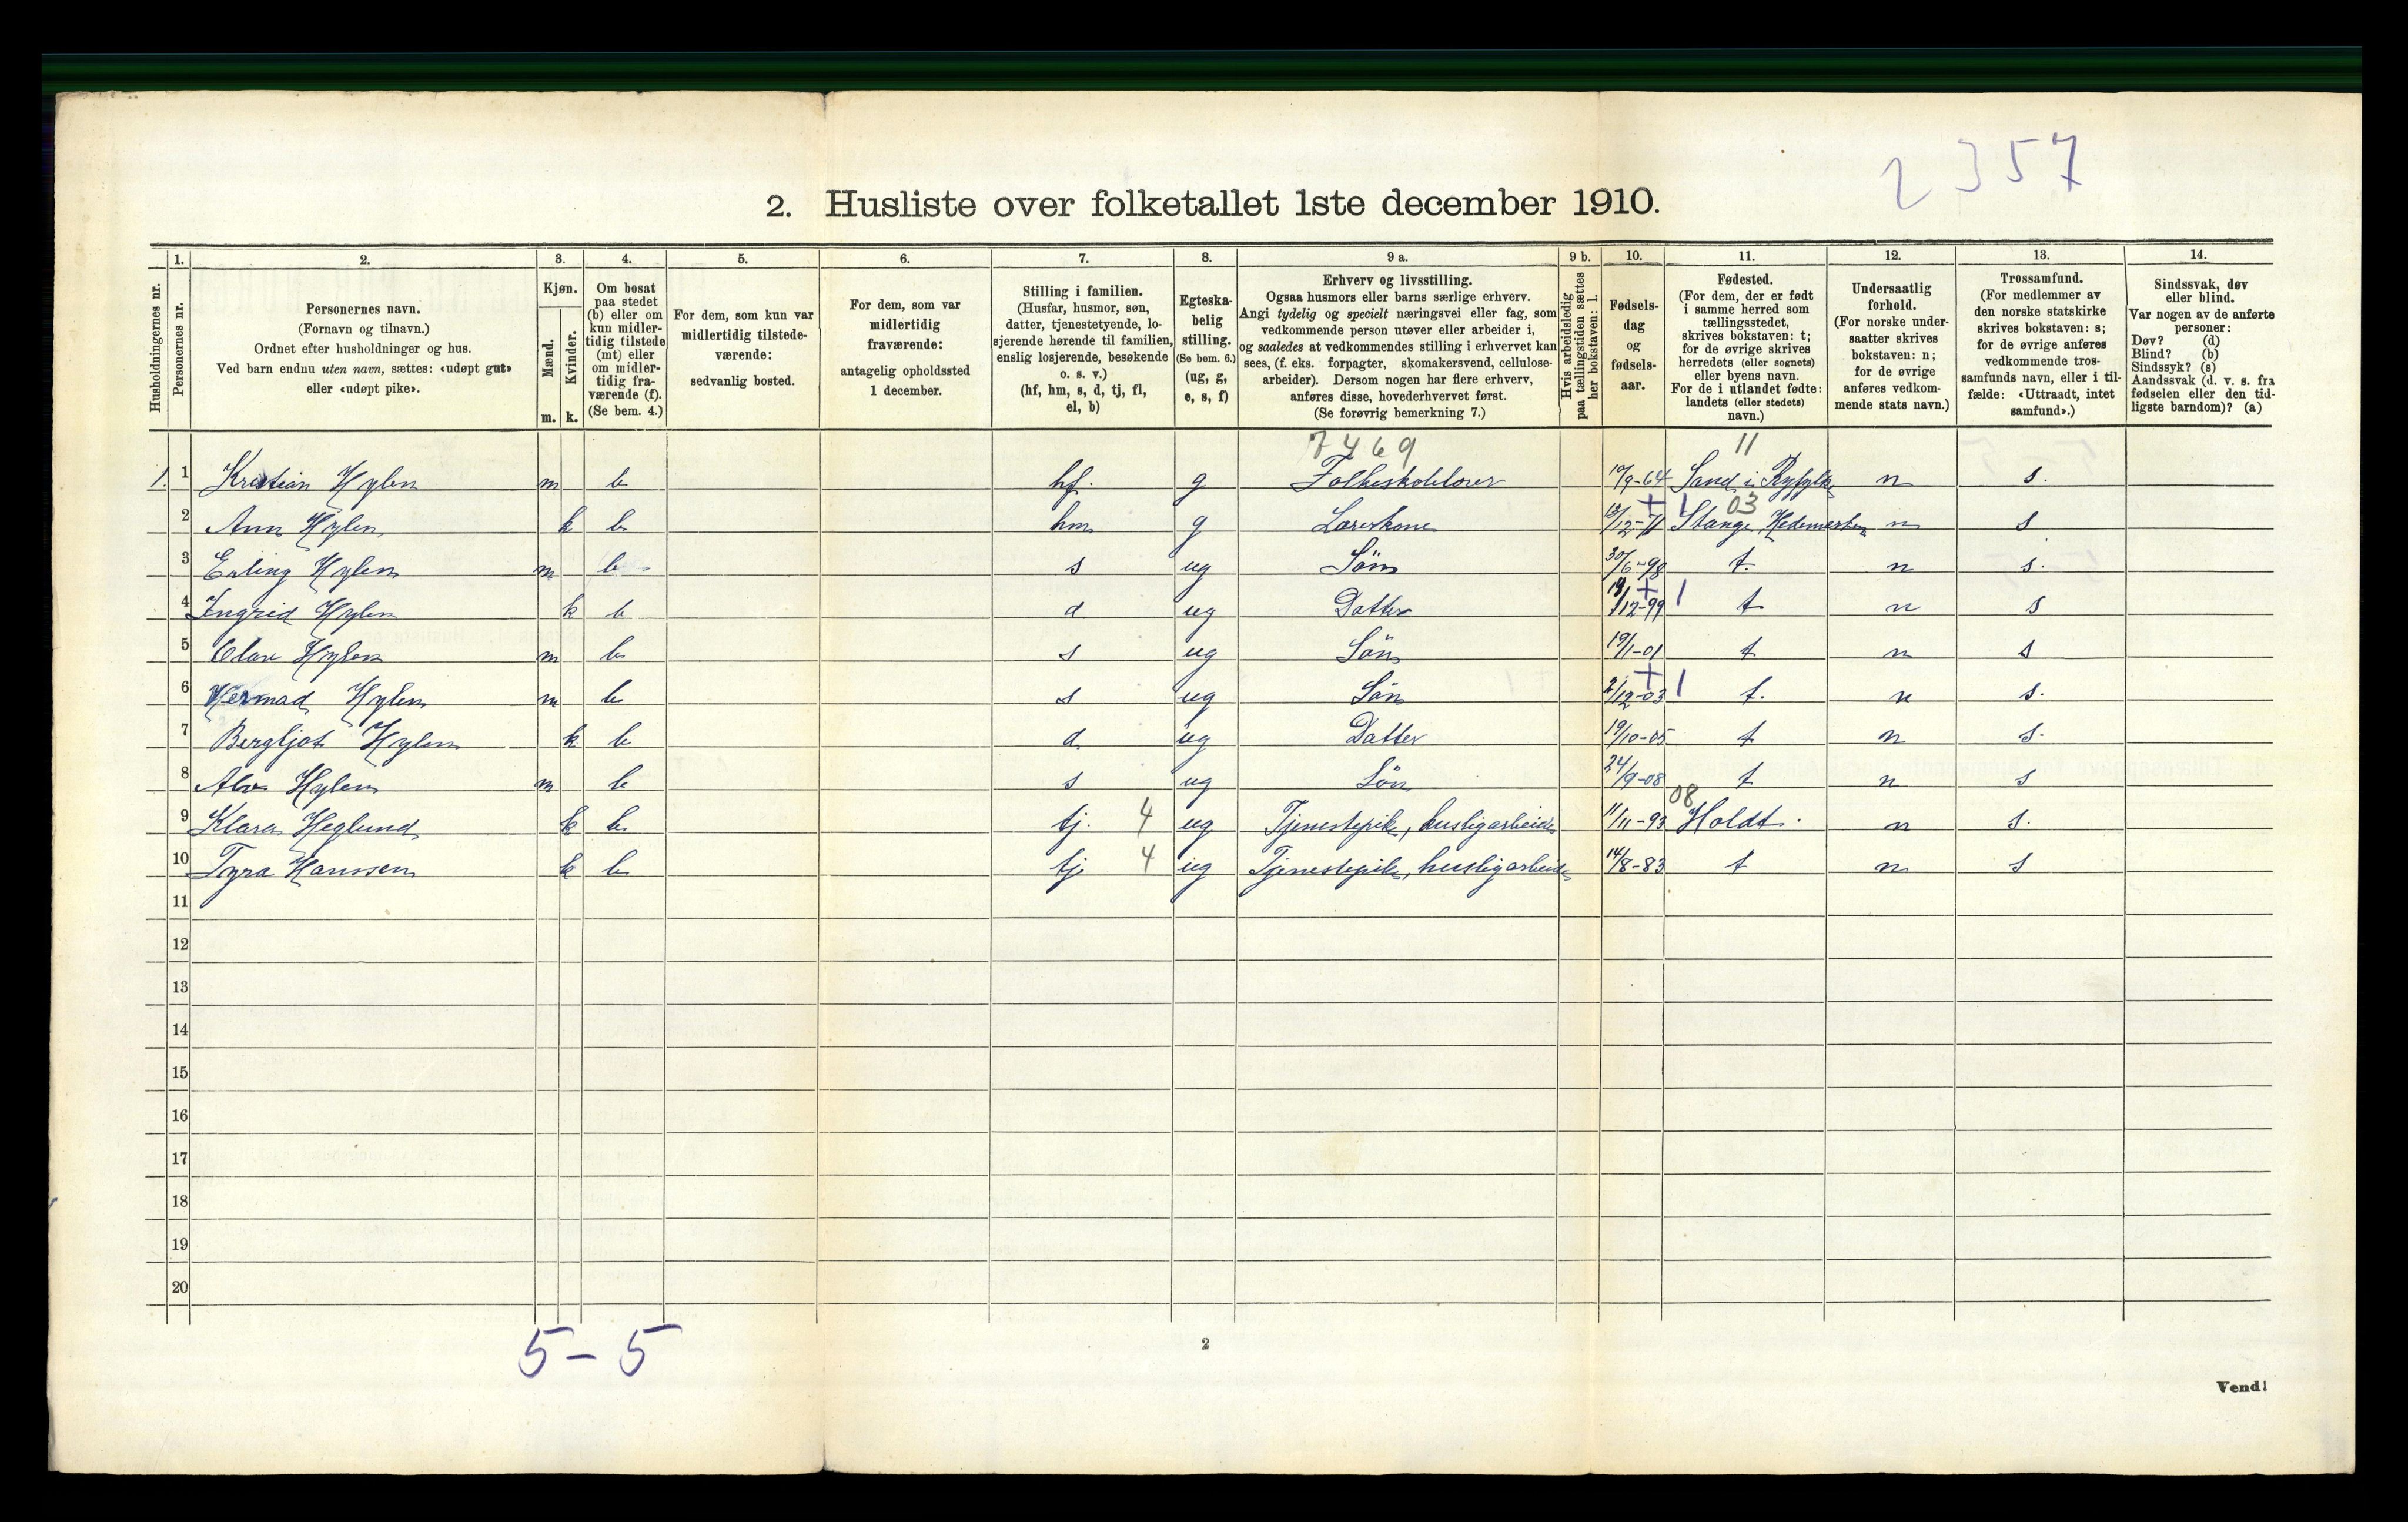 2 3 5 7
2. Husliste over folketallet 1ste december 1910.
Husholdningernes nr.
1. Personernes nr.
2. Personernes navn.
(Fornavn og tilnavn.)
Ordnet efter husholdninger og hus.
Ved barn endnu uten navn, sættes: «udøpt gut»
eller «udøpt pike».
3. Kjøn.
Mænd. m.
Kvinder. k.
4. Om bosat
paa stedet
(b) eller om
kun midler-
tidig tilstede
(mt) eller
om midler-
tidig fra-
værende (f).
(Se bem. 4.)
5. For dem, som kun var
midlertidig tilstede-
værende:
sedvanlig bosted.
6. For dem, som var
midlertidig
fraværende:
antagelig opholdssted
1 december.
7. Stilling i familien.
(Husfar, husmor, søn,
datter, tjenestetyende, lo-
sjerende hørende til familien,
enslig losjerende, besøkende
o. s. v.)
(hf, hm, s, d, tj, fl,
el, b)
8. Egteska-
belig
stilling.
(Se bem. 6.)
(ug, g,
e, s, f)
9 a. Erhverv og livsstilling.
Ogsaa husmors eller barns særlige erhverv.
Angi tydelig og specielt næringsvei eller fag, som
vedkommende person utøver eller arbeider i,
og saaledes at vedkommendes stilling i erhvervet kan
sees, (f. eks. forpagter, skomakersvend, cellulose-
arbeider). Dersom nogen har flere erhverv,
anføres disse, hovederhvervet først.
(Se forøvrig bemerkning 7.)
9 b. Hvis arbeidsledig
paa tællingstiden sættes
her bokstaven: l.
10. Fødsels-
dag
og
fødsels-
aar.
11. Fødested.
(For dem, der er født
i samme herred som
tællingsstedet,
skrives bokstaven: t;
for de øvrige skrives
herredets (eller sognets)
eller byens navn.
For de i utlandet fødte:
landets (eller stedets)
navn.)
12. Undersaatlig
forhold.
(For norske under-
saatter skrives
bokstaven: n;
for de øvrige
anføres vedkom-
mende stats navn.)
13. Trossamfund.
(For medlemmer av
den norske statskirke
skrives bokstaven: s;
for de øvrige anføres
vedkommende tros-
samfunds navn, eller i til-
fælde: «Uttraadt, intet
samfund».)
14. Sindssvak, døv
eller blind.
Var nogen av de anførte
personer:
Døv? (d)
Blind? (b)
Sindssyk? (s)
Aandssvak (d. v. s. fra
fødselen eller den tid-
ligste barndom)? (a)
7469 11
1. 1 Kristian Hylen m b hf. g Folkeskolelærer 10/9-64 Sand i Ryfylke n s.
+ 1 03
2 Ann Hylen k b hm g Lærerkone 13/12-71 Stange, Hedemarken n s
3 Erling Hylen m b s ug Søn 30/6-98 t. n s.
+ 1
4 Ingrid Hylen k b d ug Datter /12-99 t n s
5 Olav Hylen m b s ug Søn 19/1-01 t n s
+ 1
6 Hermad Hylen m b s ug Søn 2/12-03 t. n s.
7 Bergljot Hylen k b d ug Datter 19/10-05 t n s.
8 Alv Hylen m b s ug Søn 24/9-08 t n s
08
9 Klara Heglund k b tj. 4 ug Tjenestepike, husligarbeide 11/11-93 Holdt. n s.
10 Tyra Hanssen k b tj 4 ug Tjenestepike, husligarbeide 14/8-83 t n s
11
12
13
14
15
16
17
18
19
20
5 - 5
2
Vend!